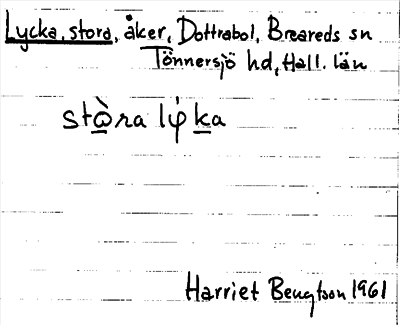 Lycka, stora, åker, Dottrabol, Breareds sn
Tönnersjö hd, Hall. län
Harriet Bengtson 1961